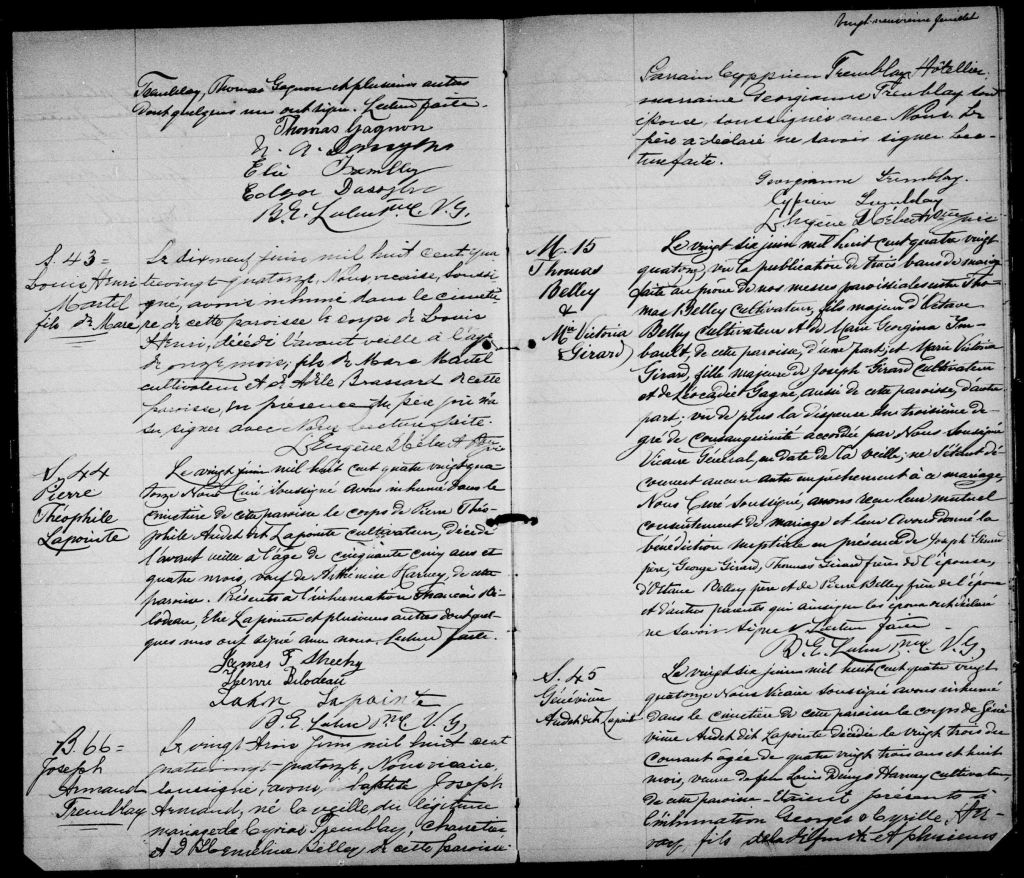 Tremblay, Thomas Gagnon et plusieurs autres
dont quelques uns ont signé. Lecture faite.
Thomas Gagnon
Elie Tremblay
B. E. Ptre V. G.
S. 43 =
Louis Henri
Martel
fils de Marc
Le dix neuf juin mil huit cent qua
trevingt quatorze, Nous vicaire, soussi
gné, avons inhumé dans le cimetiè
re de cette paroisse le corps de Louis
Henri, décédé l'avant veille à l'âge
de onze mois, fils de Marc Martel
cultivateur et de Adèle Brassard de cette
paroisse, en présence du père qui n'a
su signer avec Nous. Lecture faite.
L. Eugène Ptre
S. 44
Pierre
Théophile
Lapointe
Le vingt juin mil huit cent quatre vingt qua-
torze Nous Curé soussigné avons inhumé dans le
cimetière de cette paroisse le corps de Pierre Théo-
phile Audet dit Lapointe cultivateur, décédé
l'avant veille à l'âge de cinquante cinq ans et
quatre mois, veuf de Arthémise Harvey, de cette
paroisse. Présents à l'inhumation François Bi-
lodeau, Elie Lapointe et plusieurs autres dont quel-
ques uns ont signé avec nous. Lecture faite.
James F. Sheehy
Henri Bilodeau
Lapointe
B. E. Ptre V. G.
B. 66 =
Joseph
Armand
Tremblay
Le vingt trois juin mil huit cent
quatrevingt quatorze, Nous vicaire,
soussigné, avons baptisé Joseph
Armand, né la veille du légitime
mariage de Cyriac Tremblay, charretier
et d' Belley de cette paroisse.
Vingt-neuvième feuillet
Parrain Cyprien Tremblay Hôtellier;
marraine Georgianne Tremblay son
épouse, soussignés avec Nous. Le
père a déclaré ne savoir signer lec-
ture faite.
Georgianne Tremblay.
Cyprien Tremblay
L. Eugène
M. 15
Thomas
Belley
&
Mie Victoria
Girard
Le vingt six juin mil huit cent quatre vingt
quatorze, vu la publication de trois bans de mariage
faite au prône de nos messes paroissiales entre Tho-
mas Belley cultivateur, fils majeur d'Octave
Belley cultivateur et de Marie Georgina Im-
bault, de cette paroisse, d'une part, et Marie Victoria
Girard, fille majeure de Joseph Girard cultivateur
et de Léocadie Gagné, aussi de cette paroisse, d'autre
part; vu de plus la dispense du troisième de-
gré de consanguinité accordée par Nous Soussigné
Vicaire Général, en date de la veille; ne s'étant dé-
couvert aucun autre empêchement à ce mariage,
Nous Curé Soussigné, avons reçu leur mutuel
consentement de mariage et leur avons donné la
bénédiction nuptiale en présence de Joseph Girard
père, George Girard, Thomas Girard frères de l'épouse,
d'Octave Belley père et de Pierre Belley frère de l'époux
et d'autres parents qui ainsi que les époux ont déclaré
ne savoir signer. Lecture faite.
B. E. Ptre V. G.
S. 45
Généviève
Audet dit Lapointe
Le vingt six juin mil huit cent quatre vingt
quatorze Nous Vicaire Soussigné avons inhumé
dans le cimetière de cette paroisse le corps de Géné-
viève Audet dit Lapointe décédée le vingt trois du
courant âgée de quatre vingt trois ans et huit
mois, veuve de feu Louis Denys Harvey cultivateur,
de cette paroisse. Etaient présents à
l'inhumation Georges & Cyrille, Har-
vey, fils de la défunte et plusieurs